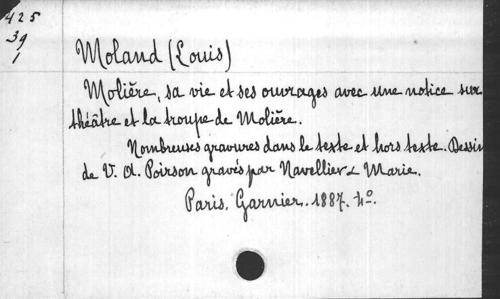 425
39
1
Moland (Louis)
Molière, sa vie et ses ouvrages avec une notice sur
théâtre et la troupe de Molière.
Nombreuses gravures dans le texte et hors texte. Dessin
de V. A. Poirson gravés par Navellier & Marie.
Paris. Garnier. 1887. 4º.